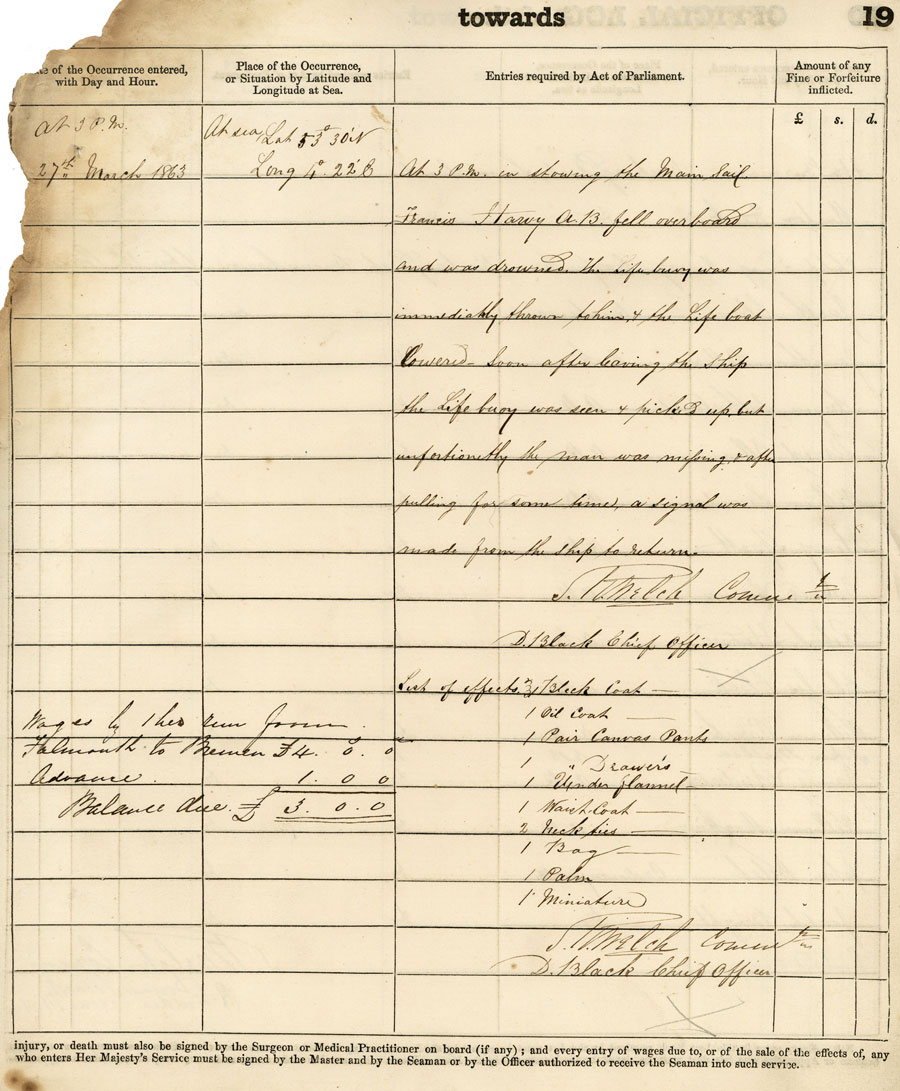 towards
19
e of the Occurrence entered,
with Day and Hour.
Place of the Occurrence,
or Situation by Latitude and
Longitude at Sea.
Entries required by Act of Parliament.
Amount of any
Fine or Forfeiture
inflicted.
£ s. d.
At 3 P.M.
27th March 1863
At sea, Lat 53° 30' N
Long 4°. 22' E
At 3 P.M. in stowing the Main Sail
Francis Harvy A.B. fell overboard
and was drowned. The Life buoy was
immediatly thrown to him, & the Life boat
Lowered - Soon after leaving the Ship
the Life buoy was seen & pick.d up, but
unfortionetly the man was missing, & after
pulling for some time, a signal was
made from the ship to return.
Welch
D. Black Chief Officer
List of effects. Black Coat
1 Oil Coat
1 Pair Canvas Pants
1 " Drawers
1 Under flannel
1 Waist Coat
2 Neck ties
1 Bag
1 Palm
1 Miniature
Welch
D. Black Chief Officer
Wages by the run from
Falmouth to Bremen £4. 0. 0
Advance. 1. 0 0
Balance due. £ 3. 0. 0
injury, or death must also be signed by the Surgeon or Medical Practitioner on board (if any) ; and every entry of wages due to, or of the sale of the effects of, any
who enters Her Majesty's Service must be signed by the Master and by the Seaman or by the Officer authorized to receive the Seaman into such service.